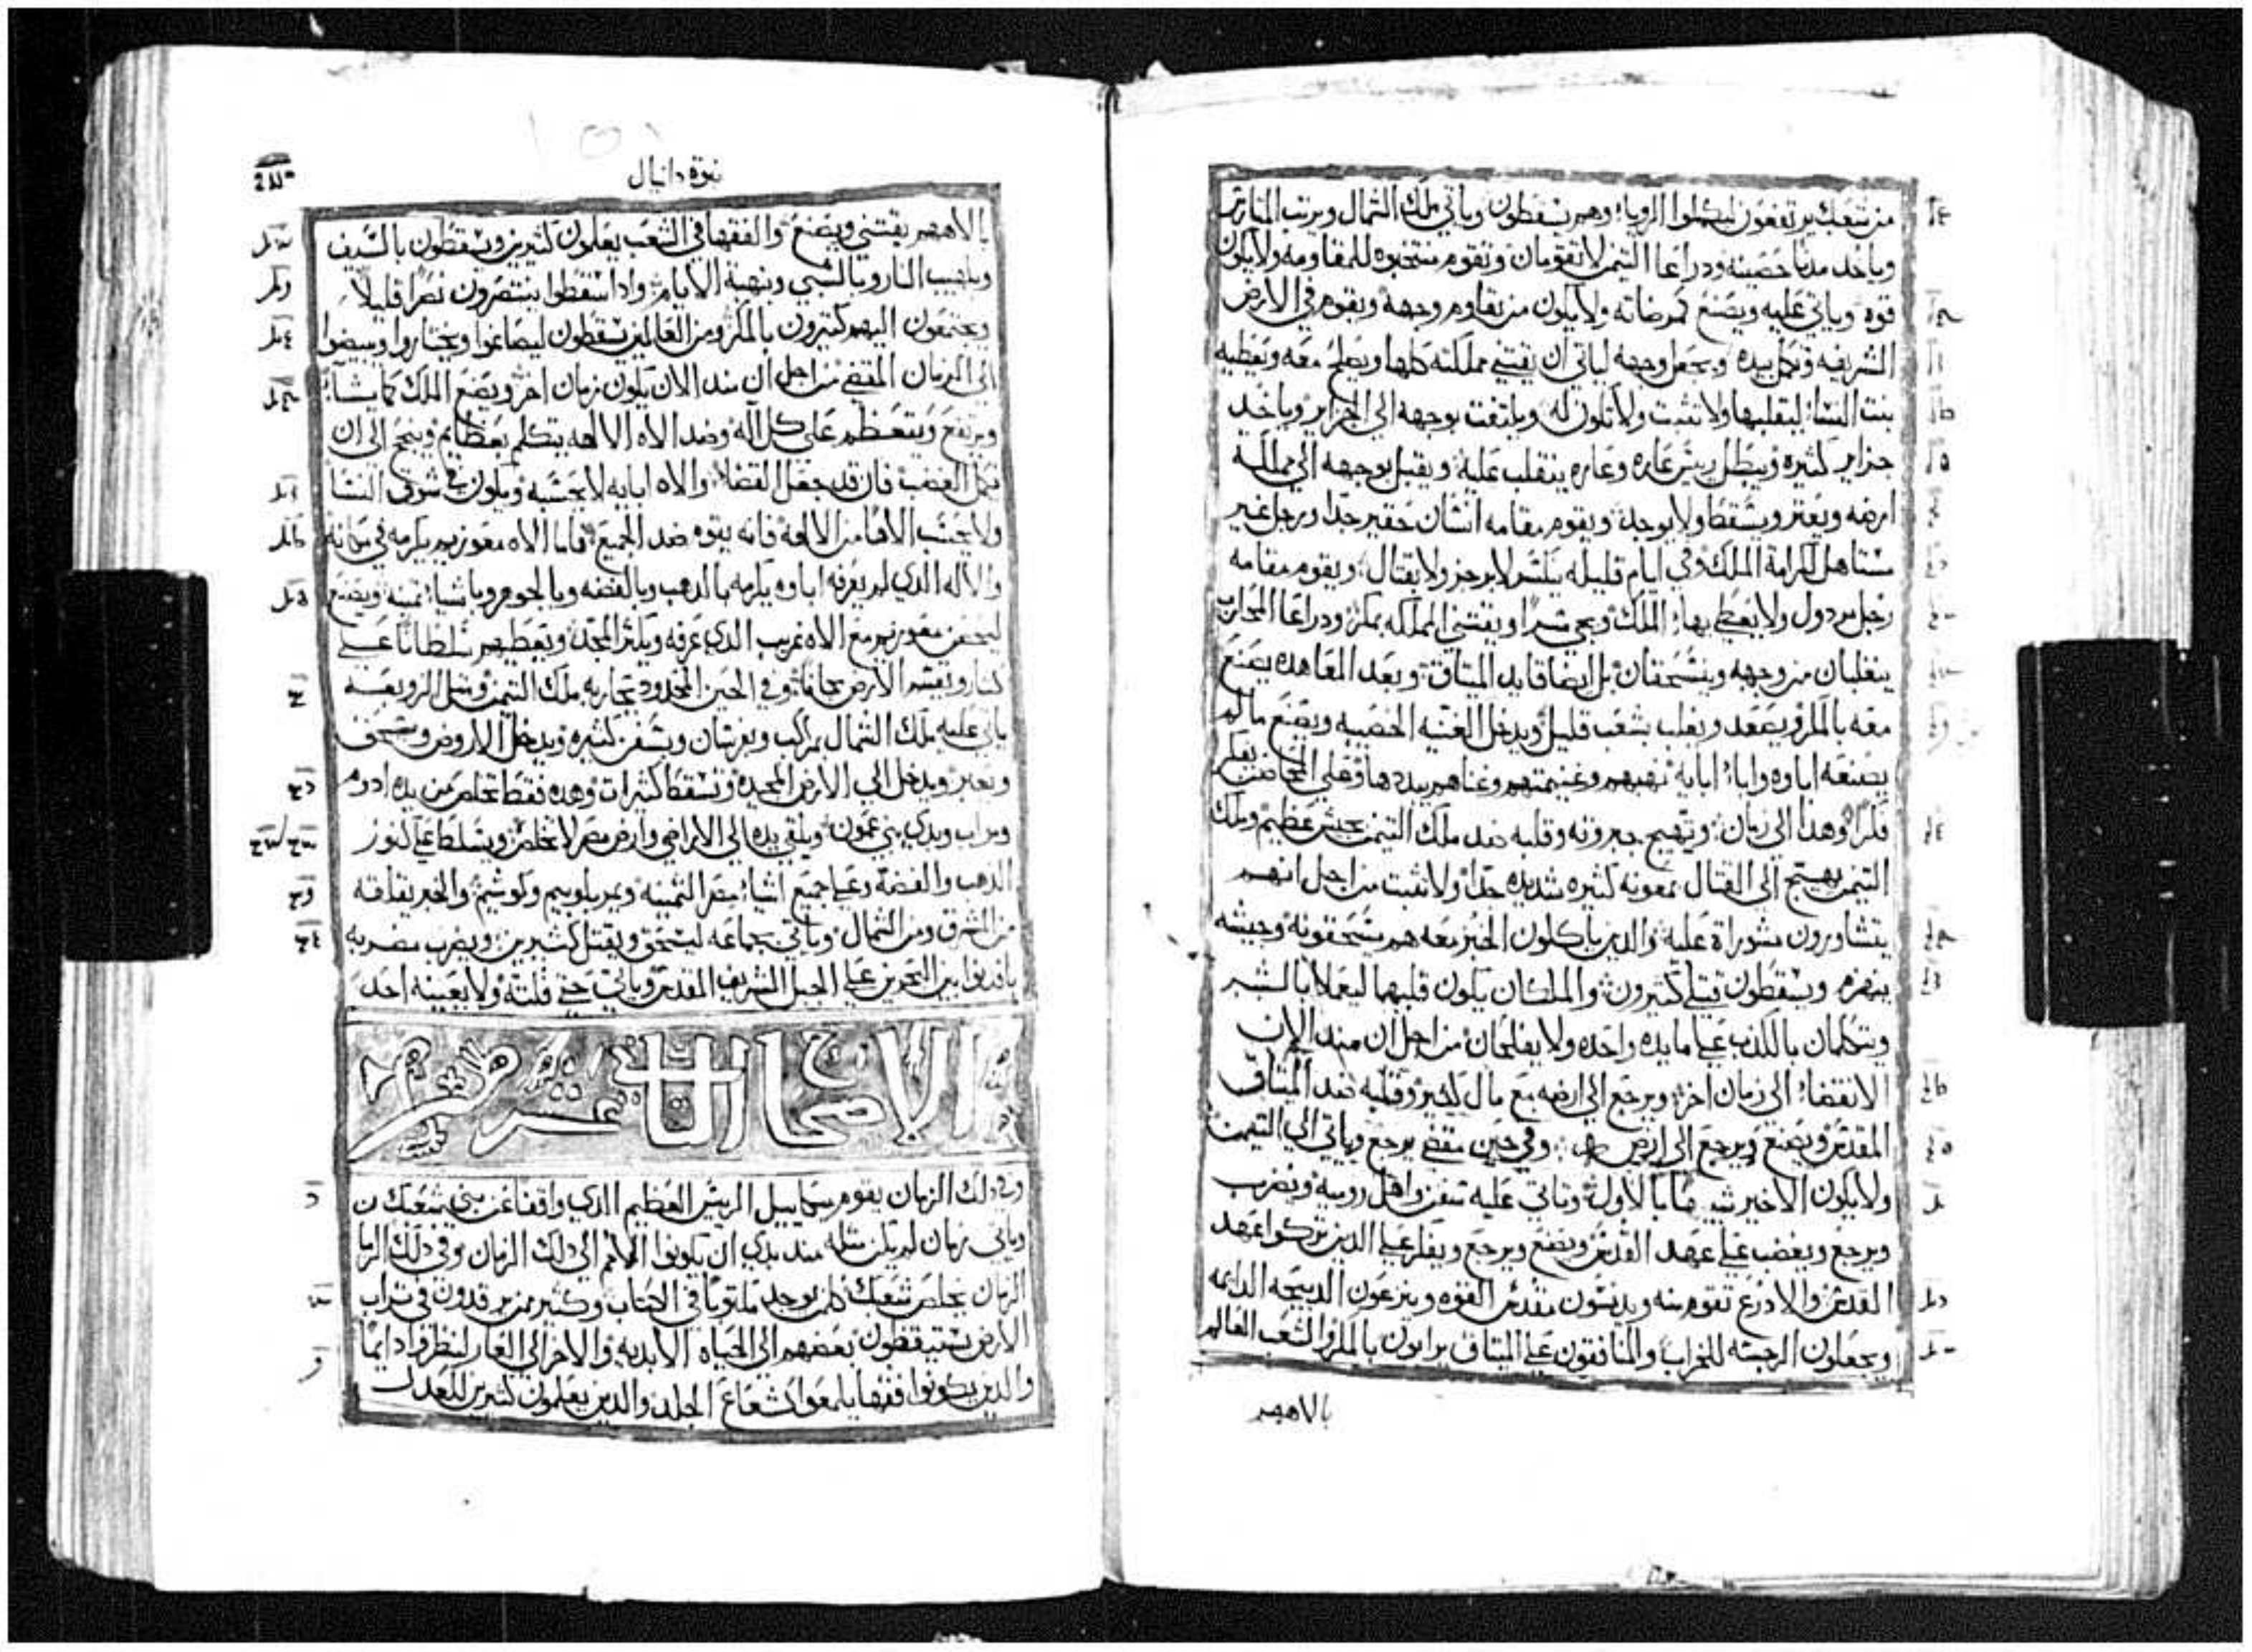 من شعبك يرتفعون ليكملوا الرويا وهم يسقطون وياتي ملك الشمال ويرتب المتارس
وياخد مدنا حصينه ودراعا التيمن لا تقومان وتقوم منتخبوه للمقاومه ولا يكون
قوه وياتي عليه ويصنع كمرضاته ولا يكون من يقاوم وجهه ويقوم في الارض
الشريفه وتكمل بيده ويجعل وجهه لياتي ان يقتني مملكته كلها ويصلح معه ويعطيه
بنت النسا ليقلبها ولا تثبت ولا تكون له ويلتفت بوجهه الي الجزاير وياخد
جزاير كثيره ويبطل ريس عاره وعاره ينقلب عليه ويقبل بوجهه الي مملكة
ارضه ويعثر ويسقط ولا يوجد ويقوم مقامه انسان حقير جدا ورجل غير
مستاهل لكرامة الملك وفي ايام قليله يتكسر لا برجز ولا بقتال ويقوم مقامه
رجل مردول ولا يعطي بها الملك ويجي سرا ويقتني المملكه بمكر ودراعا المحارب
يتغلبان من وجهه وينسحقان بل ايضا قايد الميتاق وبعد المعاهده يصنع
معه بالمكر ويصعد ويغلب بشعب قليل ويدخل الغنيه الخصيبه ويصنع ما لم
يصنعه اباوه وابا ابايه نهبهم وغنيمتهم وغناهم يبددها وعلي المحاصن يفكر
فكرا وهدا الي زمان وتهيج جبروته وقلبه ضد ملك التيمن بجيش عظيم وملك
التيمن يهتج الي القتال بمعونه كثيره شديده جدا ولا تثبت من اجل انهم
يتشاورون مشوراة عليه والدين ياكلون الخبز معه هم يسحقونه وجيشه
ينهزم ويسقطون قتلي كتيرون والملكان يكون قلبهما ليعملا بالشر
ويتكلمان بالكدب علي مايده واحده ولا يفلحان من اجل ان مند الان
الانقضا الي زمان اخر ويرجع الي ارضه مع مال كثير وقلبه ضد الميتاق
المقدس ويصنع ويرجع الي ارضه وفي حين مقضي يرجع وياتي الي التيمن
ولا يكون الاخير شبيها بالاول وتاتي عليه سفن واهل رومية ويضرب
ويرجع ويغضب علي عهد القدس ويصنع ويرجع ويفكر علي الدين تركوا عهد
القدس والادرع تقوم منه ويدنسون مقدس القوه وينزعون الدبيحه الدايمه
ويجعلون الرجسه للخراب والمنافقون علي الميتاق يراءون بالمكر والشعب العالم
بالاههم
نبوة دانيال
بالاههم يقتني ويصنع والفقها في الشعب يعلمون كثيرين ويسقطون بالسيف
وبلهيب النار وبالسبي ونهبة الايام وادا سقطوا ينتصرون نصرا قليلا
ويجتمعون اليهم كثيرون بالمكر ومن العالمين يسقطون ليصاغوا ويختاروا ويبيضوا
الي الزمان المقضي من اجل ان مند الان يكون زمان اخر ويصنع الملك كما يشا
ويرتفع ويتعظم علي كل اله وضد الاه الالهه يتكلم بعظايم وينجح الي ان
يكمل الغضب فان قد جعل القضا والاه ابايه لا يحسبه ويكون في شوق النسا
ولا يحسب الاها من الالهة فانه يقوم ضد الجميع فاما الاه معوزيم يكرمه في مكانه
والاله الدي لم يعرفه اباوه يكرمه بالدهب وبالفضه وبالجوهر وباشيا تمينه ويصنع
ليحصن معوزيم مع الاه غريب الدي عرفه ويكثر المجد ويعطيهم سلطانا علي
كثار ويقسم الارض مجانا وفي الحين المحدود تحاربه ملك التيمن ومثل الزوبعة
ياتي عليه ملك الشمال بمراكب وبفرسان وبسفن كثيره ويدخل الاروض ويسحق
ويعبر ويدخل الي الارض المجيده وتسقط كثيرات وهده فقط تخلص من يده ادوم
ومواب وبدي بني عمون ويلقي يده الي الاراضي وارض مصر لا تخلص ويتسلط علي كنوز
الدهب والفضة وعلي جميع اشيا مصر التمينه ويمر بلوبيم وكوشيم والخبر يقلقه
من الشرق ومن الشمال وياتي بجماعه ليسحق ويقتل كثيرين ويضرب مضربه
بافدنوا بين البحرين علي الجبل الشريف المقدس وياتي حتي قلته ولا يعينه احد
الاصحاح الثاني عشر
وفي دلك الزمان يقوم ميخاييل الريس العظيم الدي واقفا عن بني شعبك
وياتي زمان لم يكن مثله مند بدي ان يكونوا الامم الي دلك الزمان وفي دلك الزما
الزمان يخلص شعبك كل من يوجد مكتوبا في الكتاب وكثير ممن يرقدون في تراب
الارض يستيقظون بعضهم الي الحياه الابديه والاخر الي العار لينظروا دايما
والدين يكونوا فقها يلمعوا كشعاع الجلد والدين يعلمون كثيرين للعدل